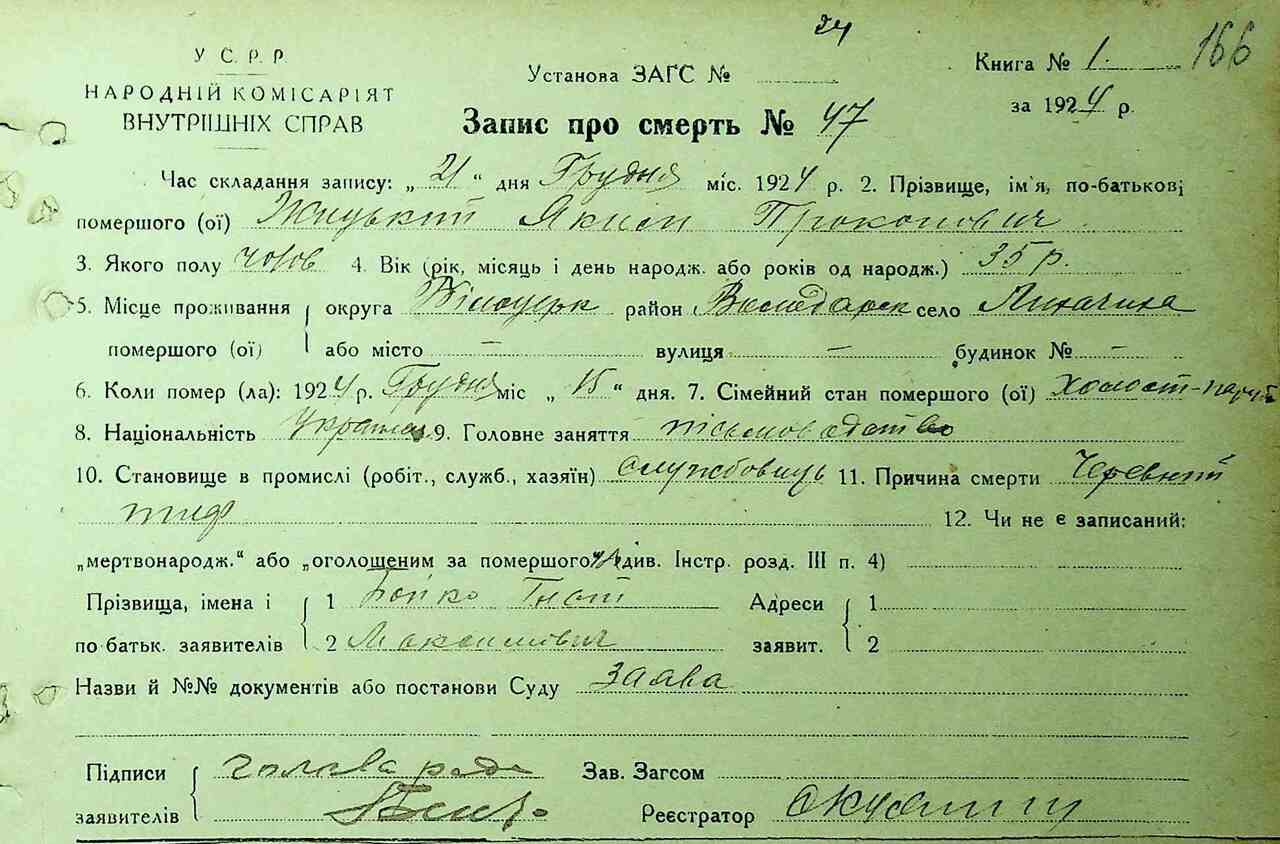 24
У С. Р. Р
НАРОДНІЙ КОМІСАРІЯТ
ВНУТРІШНІХ СПРАВ
Установа ЗАГС №
Книга № 1.
166
за 1924 р.
Запис про смерть № 47
Час складання запису: „ 21 “ дня Грудня міс. 1924 р. 2. Прізвище, ім'я, по-батькові
помершого (ої) Жицький Яким Прокопович
3. Якого полу чолов 4. Вік (рік, місяць і день народж. або років од народж.) 35 р.
5. Місце проживання округа Білоцерк район Володарск село Лихачиха
помершого (ої) або місто — вулиця — будинок № —
6. Коли помер (ла): 1924 р. Грудня міс „ 15 “ дня. 7. Сімейний стан помершого (ої) холост-
8. Національність 9. Головне заняття пісьмоводство
10. Становище в промислі (робіт., служб., хазяїн) службовиць 11. Причина смерти Черевний
тиф 12. Чи не є записаний:
„мертвонародж.“ або „оголошеним за помершого“ (див. Інстр. розд. III п. 4)
Прізвища, імена і 1 Бойко Гнат Адреси 1
по батьк. заявителів 2 Максимович заявит. 2
Назви й №№ документів або постанови Суду заява
Підписи голова ради Зав. Загсом
заявителів Реєстратор